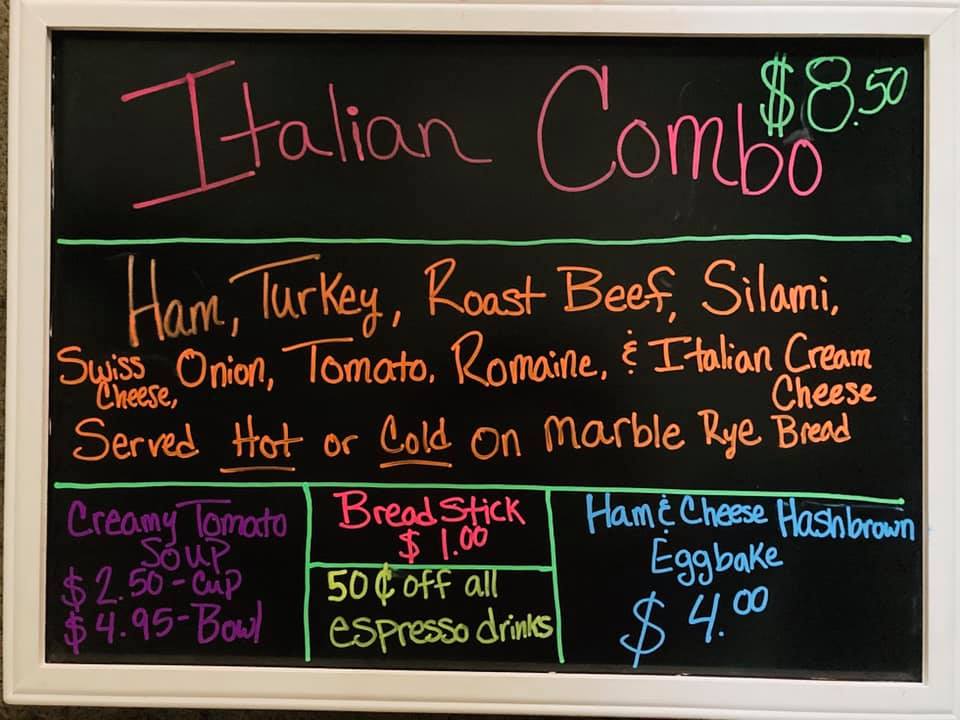 Italian Combo $8.50
Ham, Turkey, Roast Beef, Silami,
Swiss Cheese, Onion, Tomato, Romaine, & Italian Cream Cheese
Served Hot or Cold on Marble Rye Bread
Creamy Tomato
Soup
$2.50-Cup
$4.95-Bowl
Bread Stick
$1.00
50¢ off all
espresso drinks
Ham & Cheese Hashbrown
Eggbake
$4.00